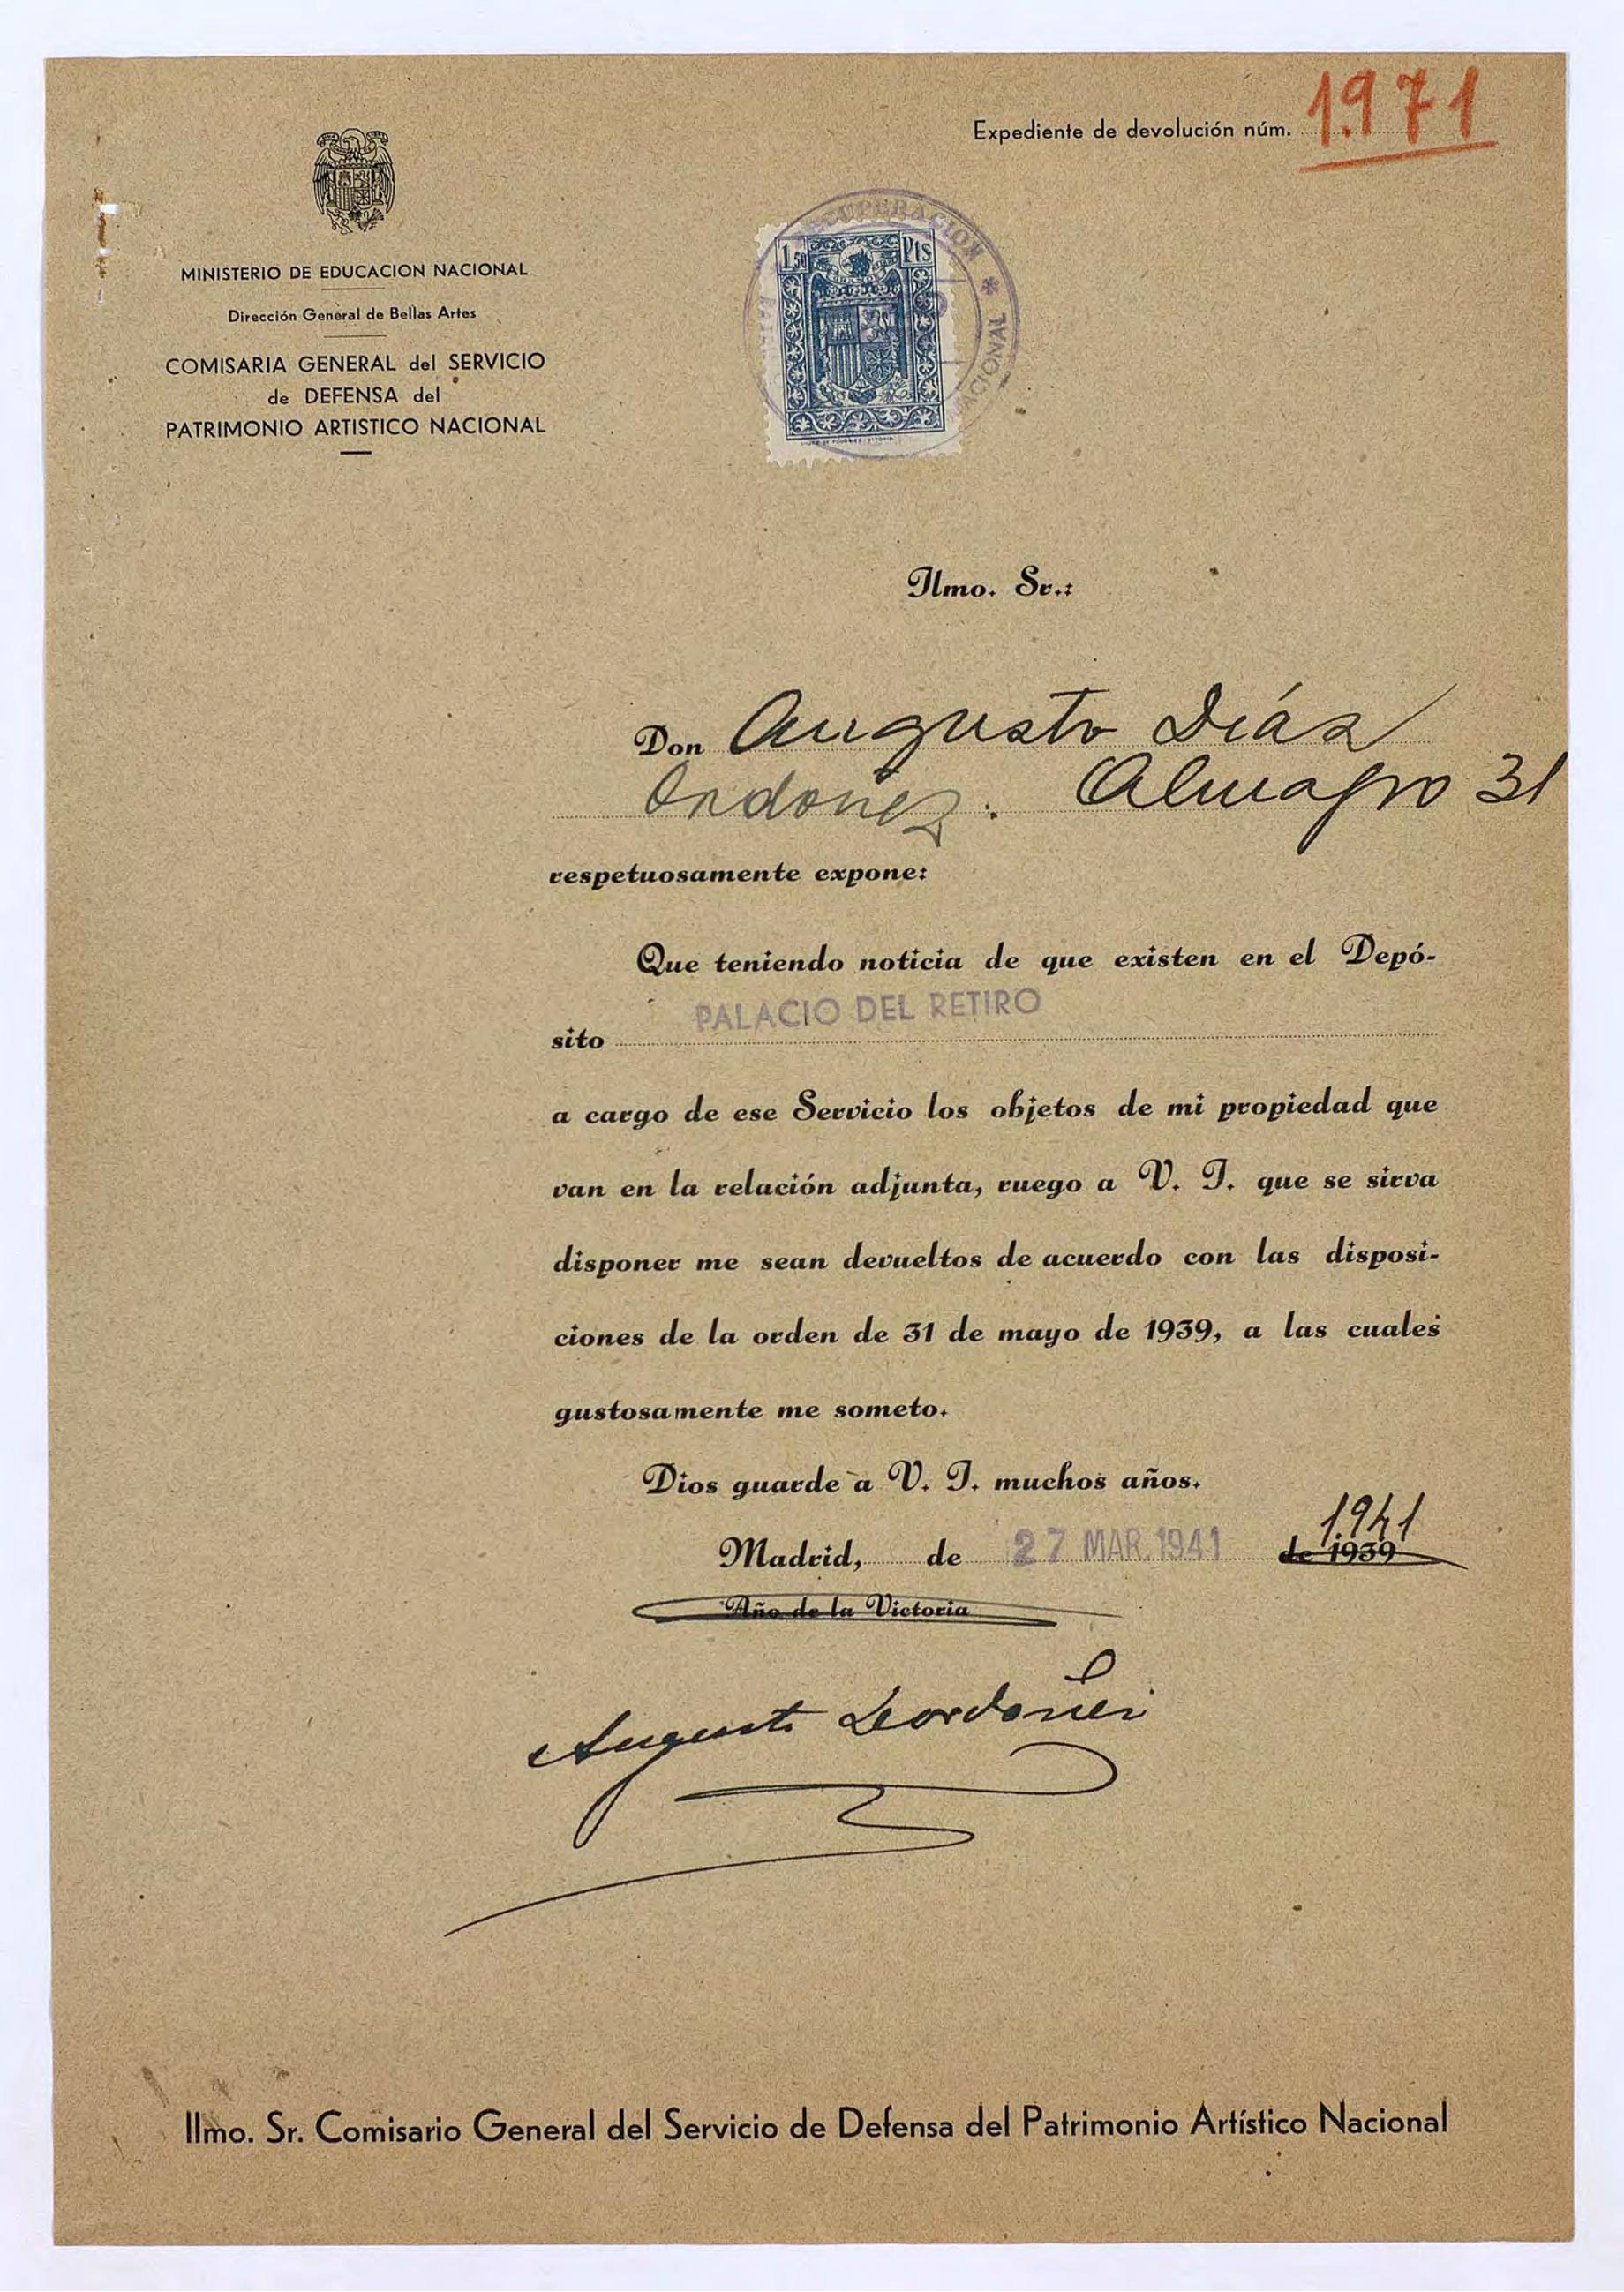 Expediente de devolución núm. 1.971
MINISTERIO DE EDUCACION NACIONAL
Dirección General de Bellas Artes
COMISARIA GENERAL del SERVICIO
de DEFENSA del
PATRIMONIO ARTISTICO NACIONAL
1,50 Pts
Ilmo. Sr.:
Don Augusto Diáz
Ordoñez. Almagro 31
respetuosamente expone:
Que teniendo noticia de que existen en el Depó-
sito PALACIO DEL RETIRO
a cargo de ese Servicio los objetos de mi propiedad que
van en la relación adjunta, ruego a V. I. que se sirva
disponer me sean devueltos de acuerdo con las disposi-
ciones de la orden de 31 de mayo de 1939, a las cuales
gustosamente me someto.
Dios guarde a V. I. muchos años.
1.941
Madrid, de 27 MAR. 1941 de 1939
Año de la Victoria
Ilmo. Sr. Comisario General del Servicio de Defensa del Patrimonio Artístico Nacional